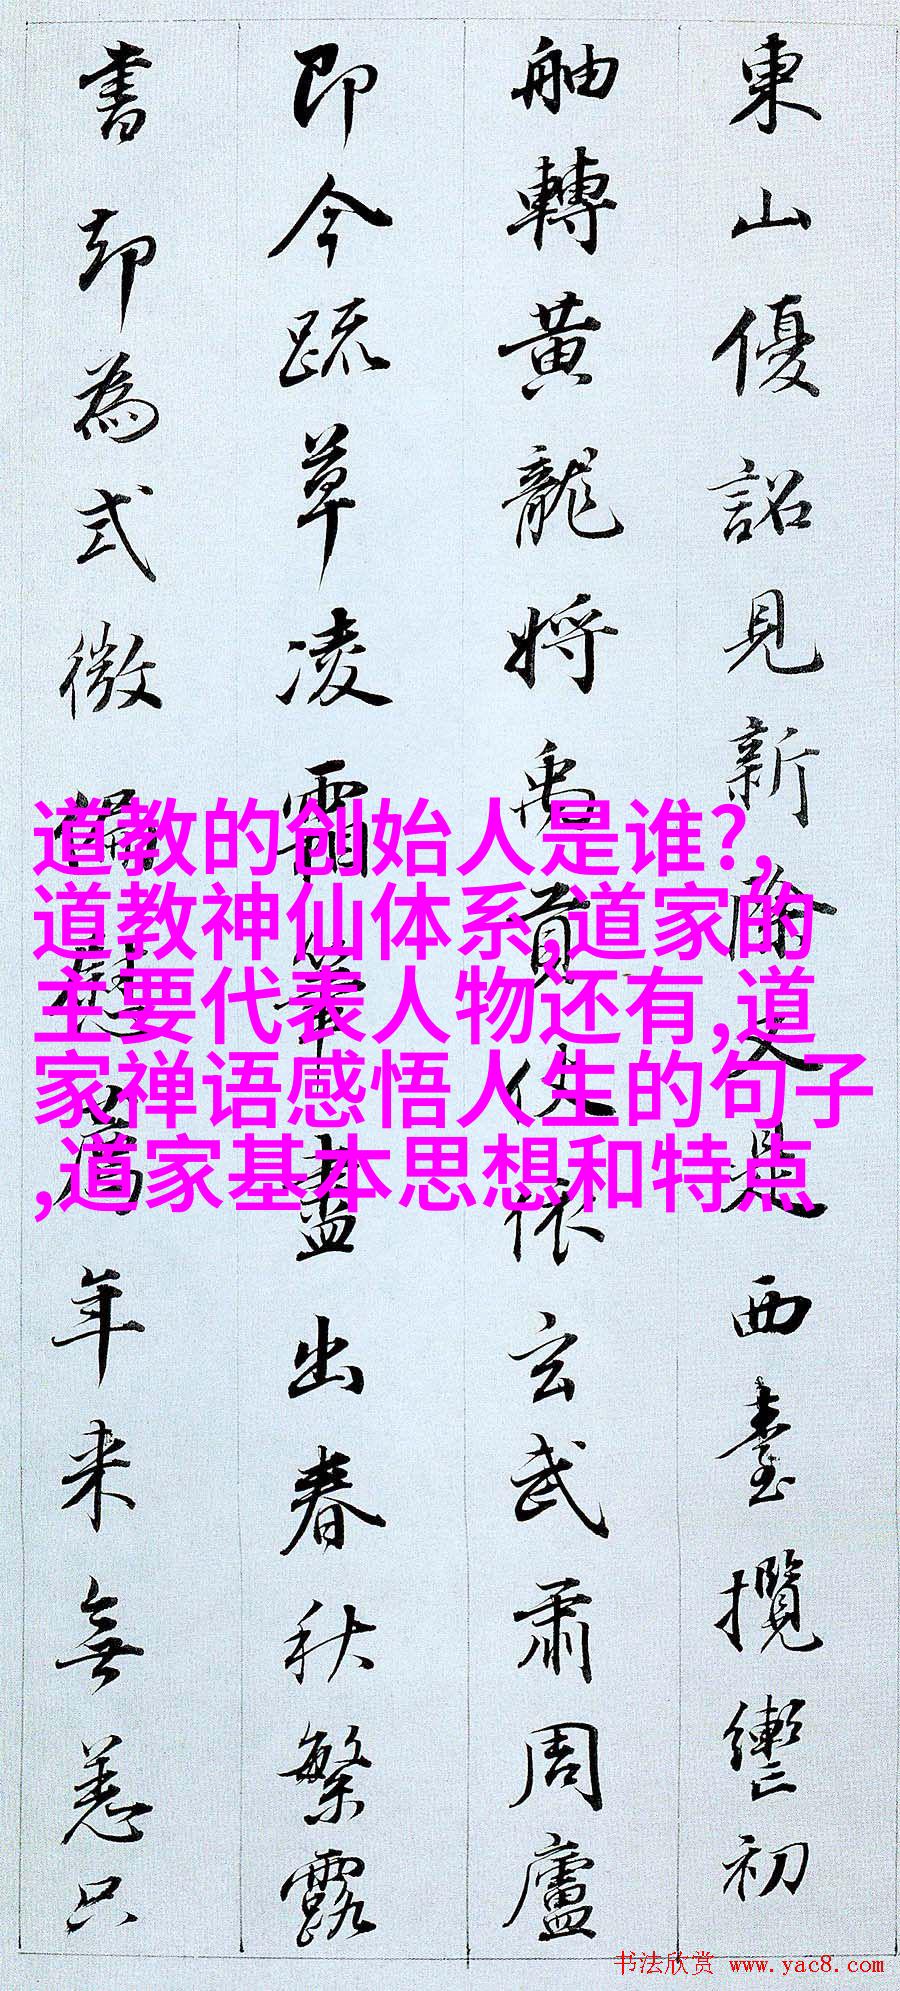 東山優詔見新除又是西臺攬轡初
舳轉黃龍將禹貢仗依玄武肅周廬
即今疏草凌霜筆盡出春秋繁露
書却為式微偏慰薦年来無恙只
道教的创始人是谁?,
道教神仙体系,道家的
主要代表人物还有,道
家禅语感悟人生的句子
,道家基本思想和特点
书法欣赏 www.yac8.com